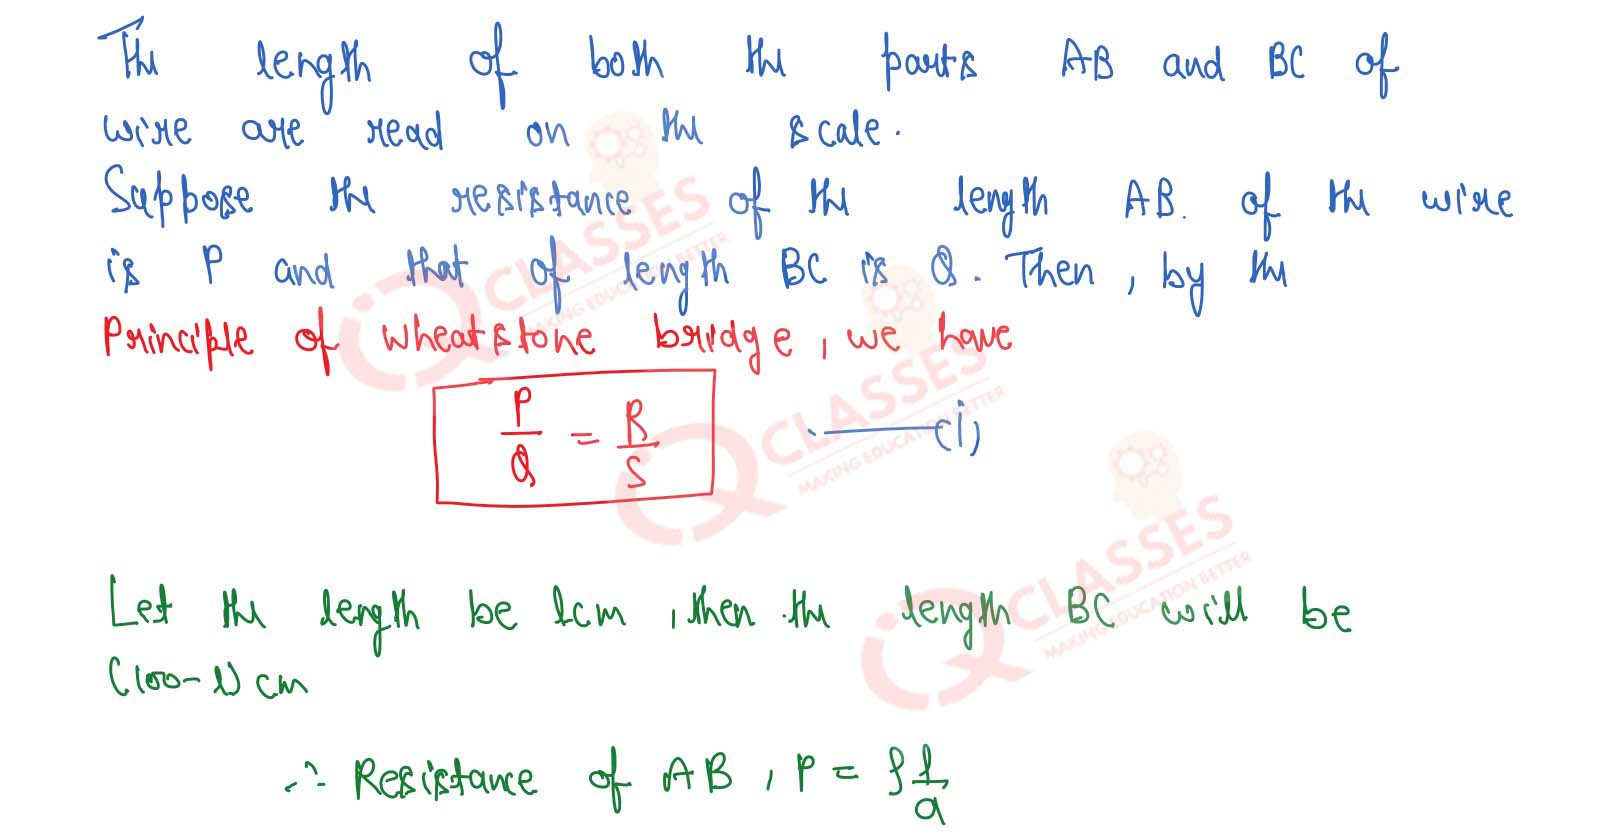 The length of both the parts AB and BC of
wire are read on the scale.
Suppose the resistance of the length AB. of the wire
is P and that of length BC is Q. Then, by the
Principle of wheatstone bridge, we have
P/Q = R/S (i)
Let the length be lcm, then the length BC will be
(100-l) cm
∴ Resistance of AB, P = ρ l/a
IQ CLASSES
MAKING EDUCATION BETTER
IQ CLASSES
MAKING EDUCATION BETTER
IQ CLASSES
MAKING EDUCATION BETTER